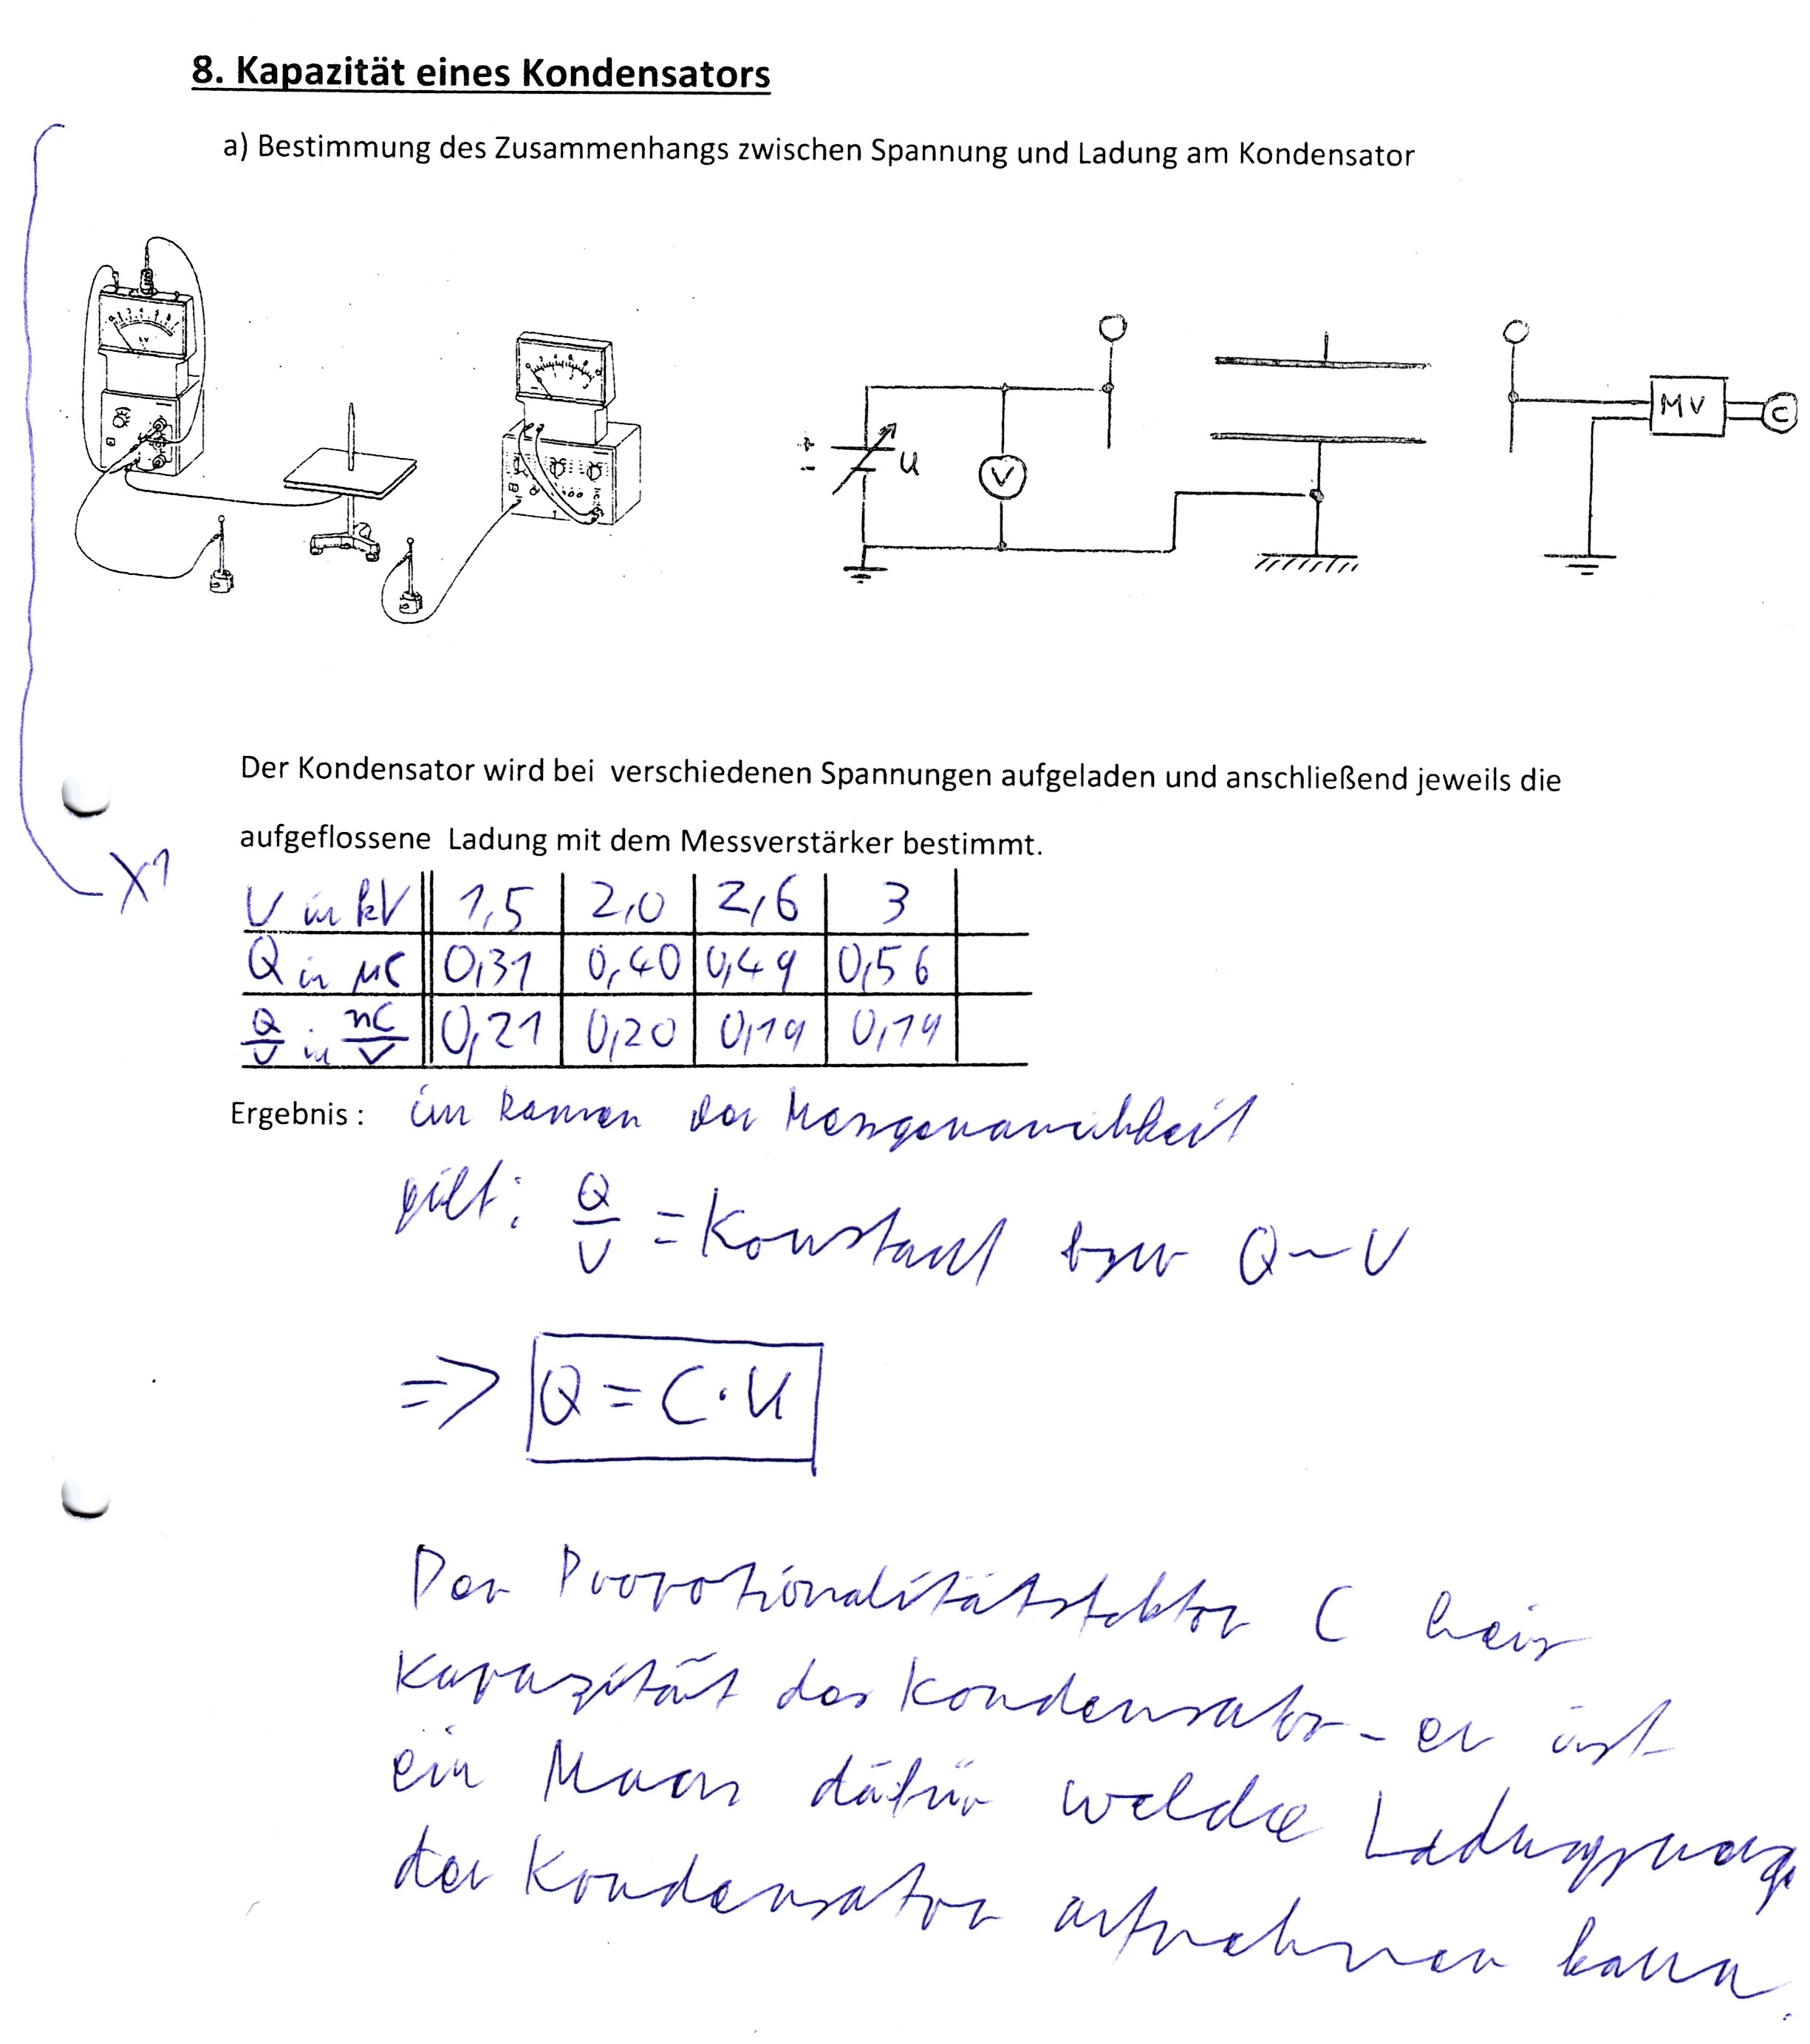 8. Kapazität eines Kondensators
a) Bestimmung des Zusammenhangs zwischen Spannung und Ladung am Kondensator
+
-
U
V
MV
C
Der Kondensator wird bei verschiedenen Spannungen aufgeladen und anschließend jeweils die
aufgeflossene Ladung mit dem Messverstärker bestimmt.
X1
U in kV 1,5 2,0 2,6 3
Q in µC 0,31 0,40 0,49 0,56
Q/U in nC/V 0,21 0,20 0,19 0,19
Ergebnis : im Ramen der Messgenauichkeit
gilt: Q/U = Konstant bzw Q ~ U
=> Q = C · U
Der Propotionalitätsfaktor C heis
Kapazität des Kondensator - er ist
ein Maas dafür welche Ladungsmenge
der Kondensator aufnehmen kann.